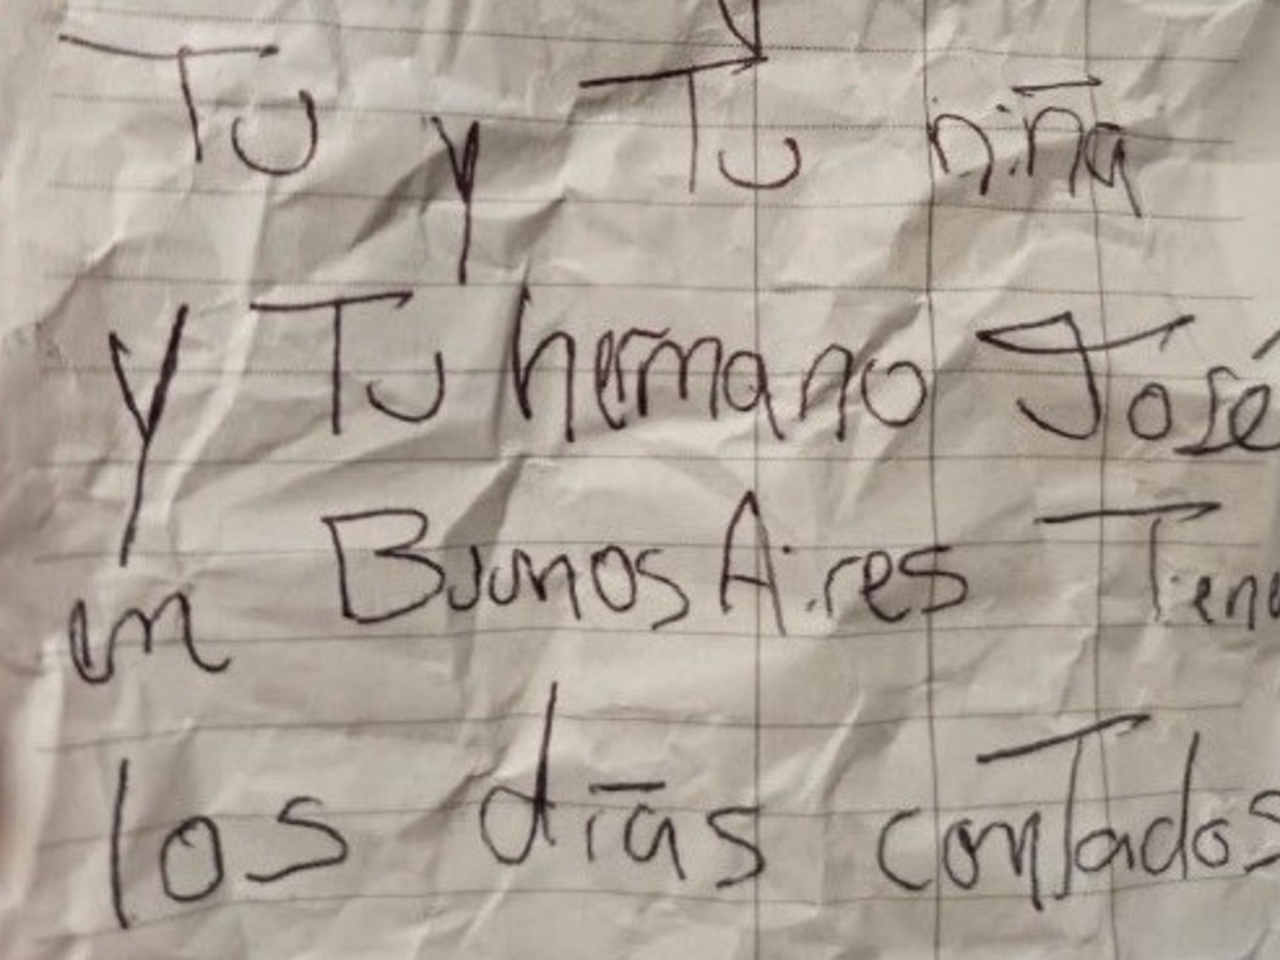 Tu y Tu niña
y Tu hermano José
en Buenos Aires
los días contados